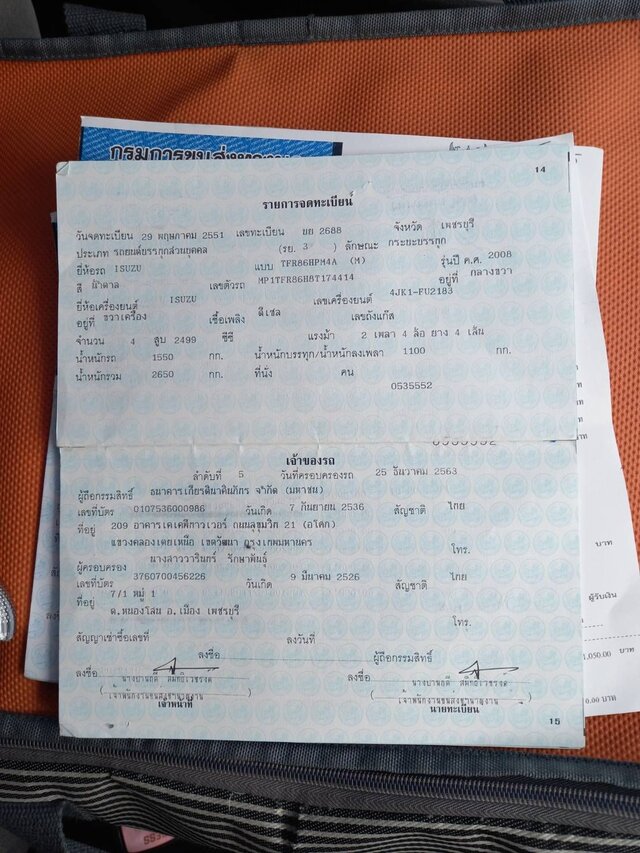 กรมการขนส่งทางบก
14
รายการจดทะเบียน
วันจดทะเบียน 29 พฤษภาคม 2551 เลขทะเบียน บย 2688 จังหวัด เพชรบุรี
ประเภท รถยนต์บรรทุกส่วนบุคคล (รย. 3 ) ลักษณะ กระบะบรรทุก
ยี่ห้อรถ ISUZU แบบ TFR86HPM4A (M) รุ่นปี ค.ศ. 2008
สี น้ำตาล เลขตัวรถ MP1TFR86H8T174414 อยู่ที่ กลางขวา
ยี่ห้อเครื่องยนต์ ISUZU เลขเครื่องยนต์ 4JK1-FU2183
อยู่ที่ ขวาเครื่อง เชื้อเพลิง ดีเซล เลขถังแก๊ส
จำนวน 4 สูบ 2499 ซีซี แรงม้า 2 เพลา 4 ล้อ ยาง 4 เส้น
น้ำหนักรถ 1550 กก. น้ำหนักบรรทุก/น้ำหนักลงเพลา 1100 กก.
น้ำหนักรวม 2650 กก. ที่นั่ง คน
0535552
เจ้าของรถ
ลำดับที่ 5 วันที่ครอบครองรถ 25 ธันวาคม 2563
ผู้ถือกรรมสิทธิ์ ธนาคารเกียรตินาคินภัทร จำกัด (มหาชน)
เลขที่บัตร 0107536000986 วันเกิด 7 กันยายน 2536 สัญชาติ ไทย
ที่อยู่ 209 อาคารเคเคพีทาวเวอร์ ถนนสุขุมวิท 21 (อโศก)
แขวงคลองเตยเหนือ เขตวัฒนา กรุงเทพมหานคร
โทร.
ผู้ครอบครอง นางสาววารินทร์ รักษาพันธุ์
เลขที่บัตร 3760700456226 วันเกิด 9 มีนาคม 2526 สัญชาติ ไทย
ที่อยู่ 7/1 หมู่ 1
ต.หนองโสน อ.เมือง เพชรบุรี
โทร.
สัญญาเช่าซื้อเลขที่ ลงวันที่
ลงชื่อ ผู้ถือกรรมสิทธิ์
ลงชื่อ ลงชื่อ
(เจ้าพนักงานขนส่งชำนาญงาน) (เจ้าพนักงานขนส่งชำนาญงาน)
เจ้าหน้าที่ นายทะเบียน
15
บาท
ผู้รับเงิน
1,050.00 บาท
0.00 บาท